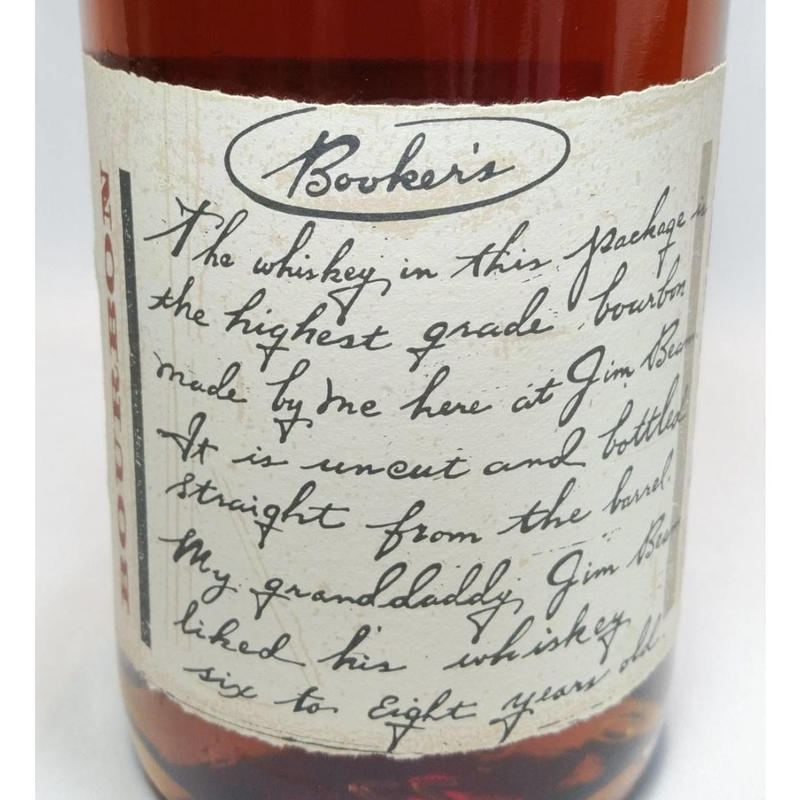 Booker's
The whiskey in this package is
the highest grade bourbon
made by me here at Jim Beam
It is uncut and bottled
straight from the barrel.
My granddaddy, Jim Beam
liked his whiskey
six to Eight years old.
BOURBON